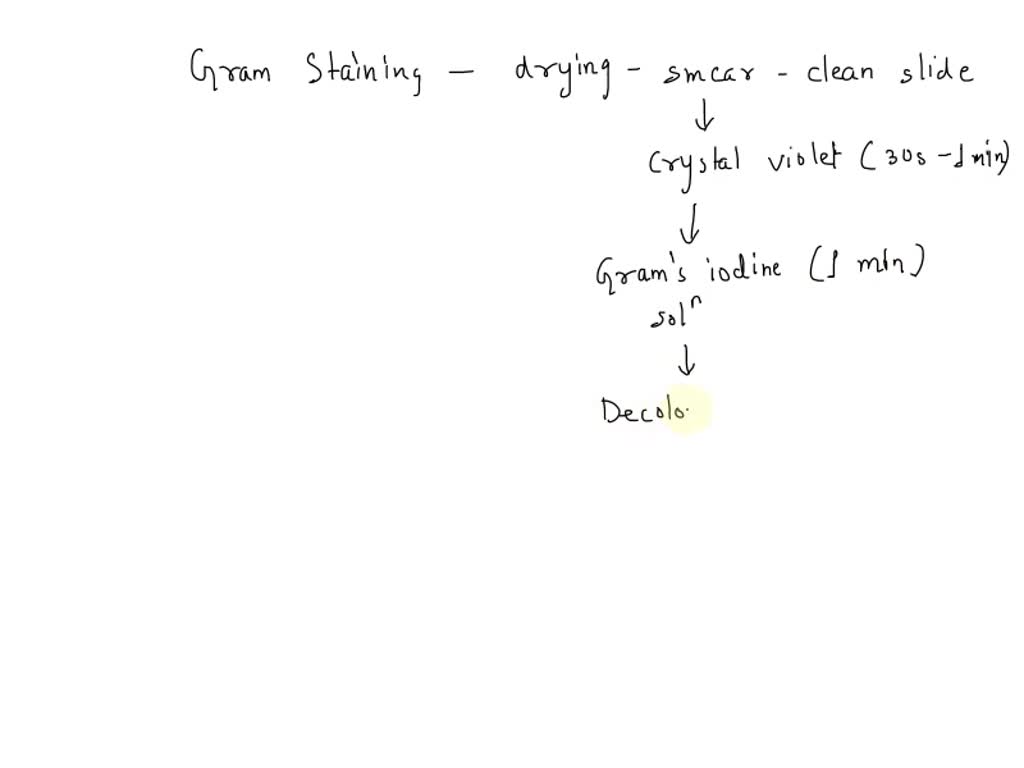 Gram Staining - drying - smear - clean slide
↓
Crystal violet (30s - 1 min)
↓
Gram's iodine (1 min)
solⁿ
↓
Decolo